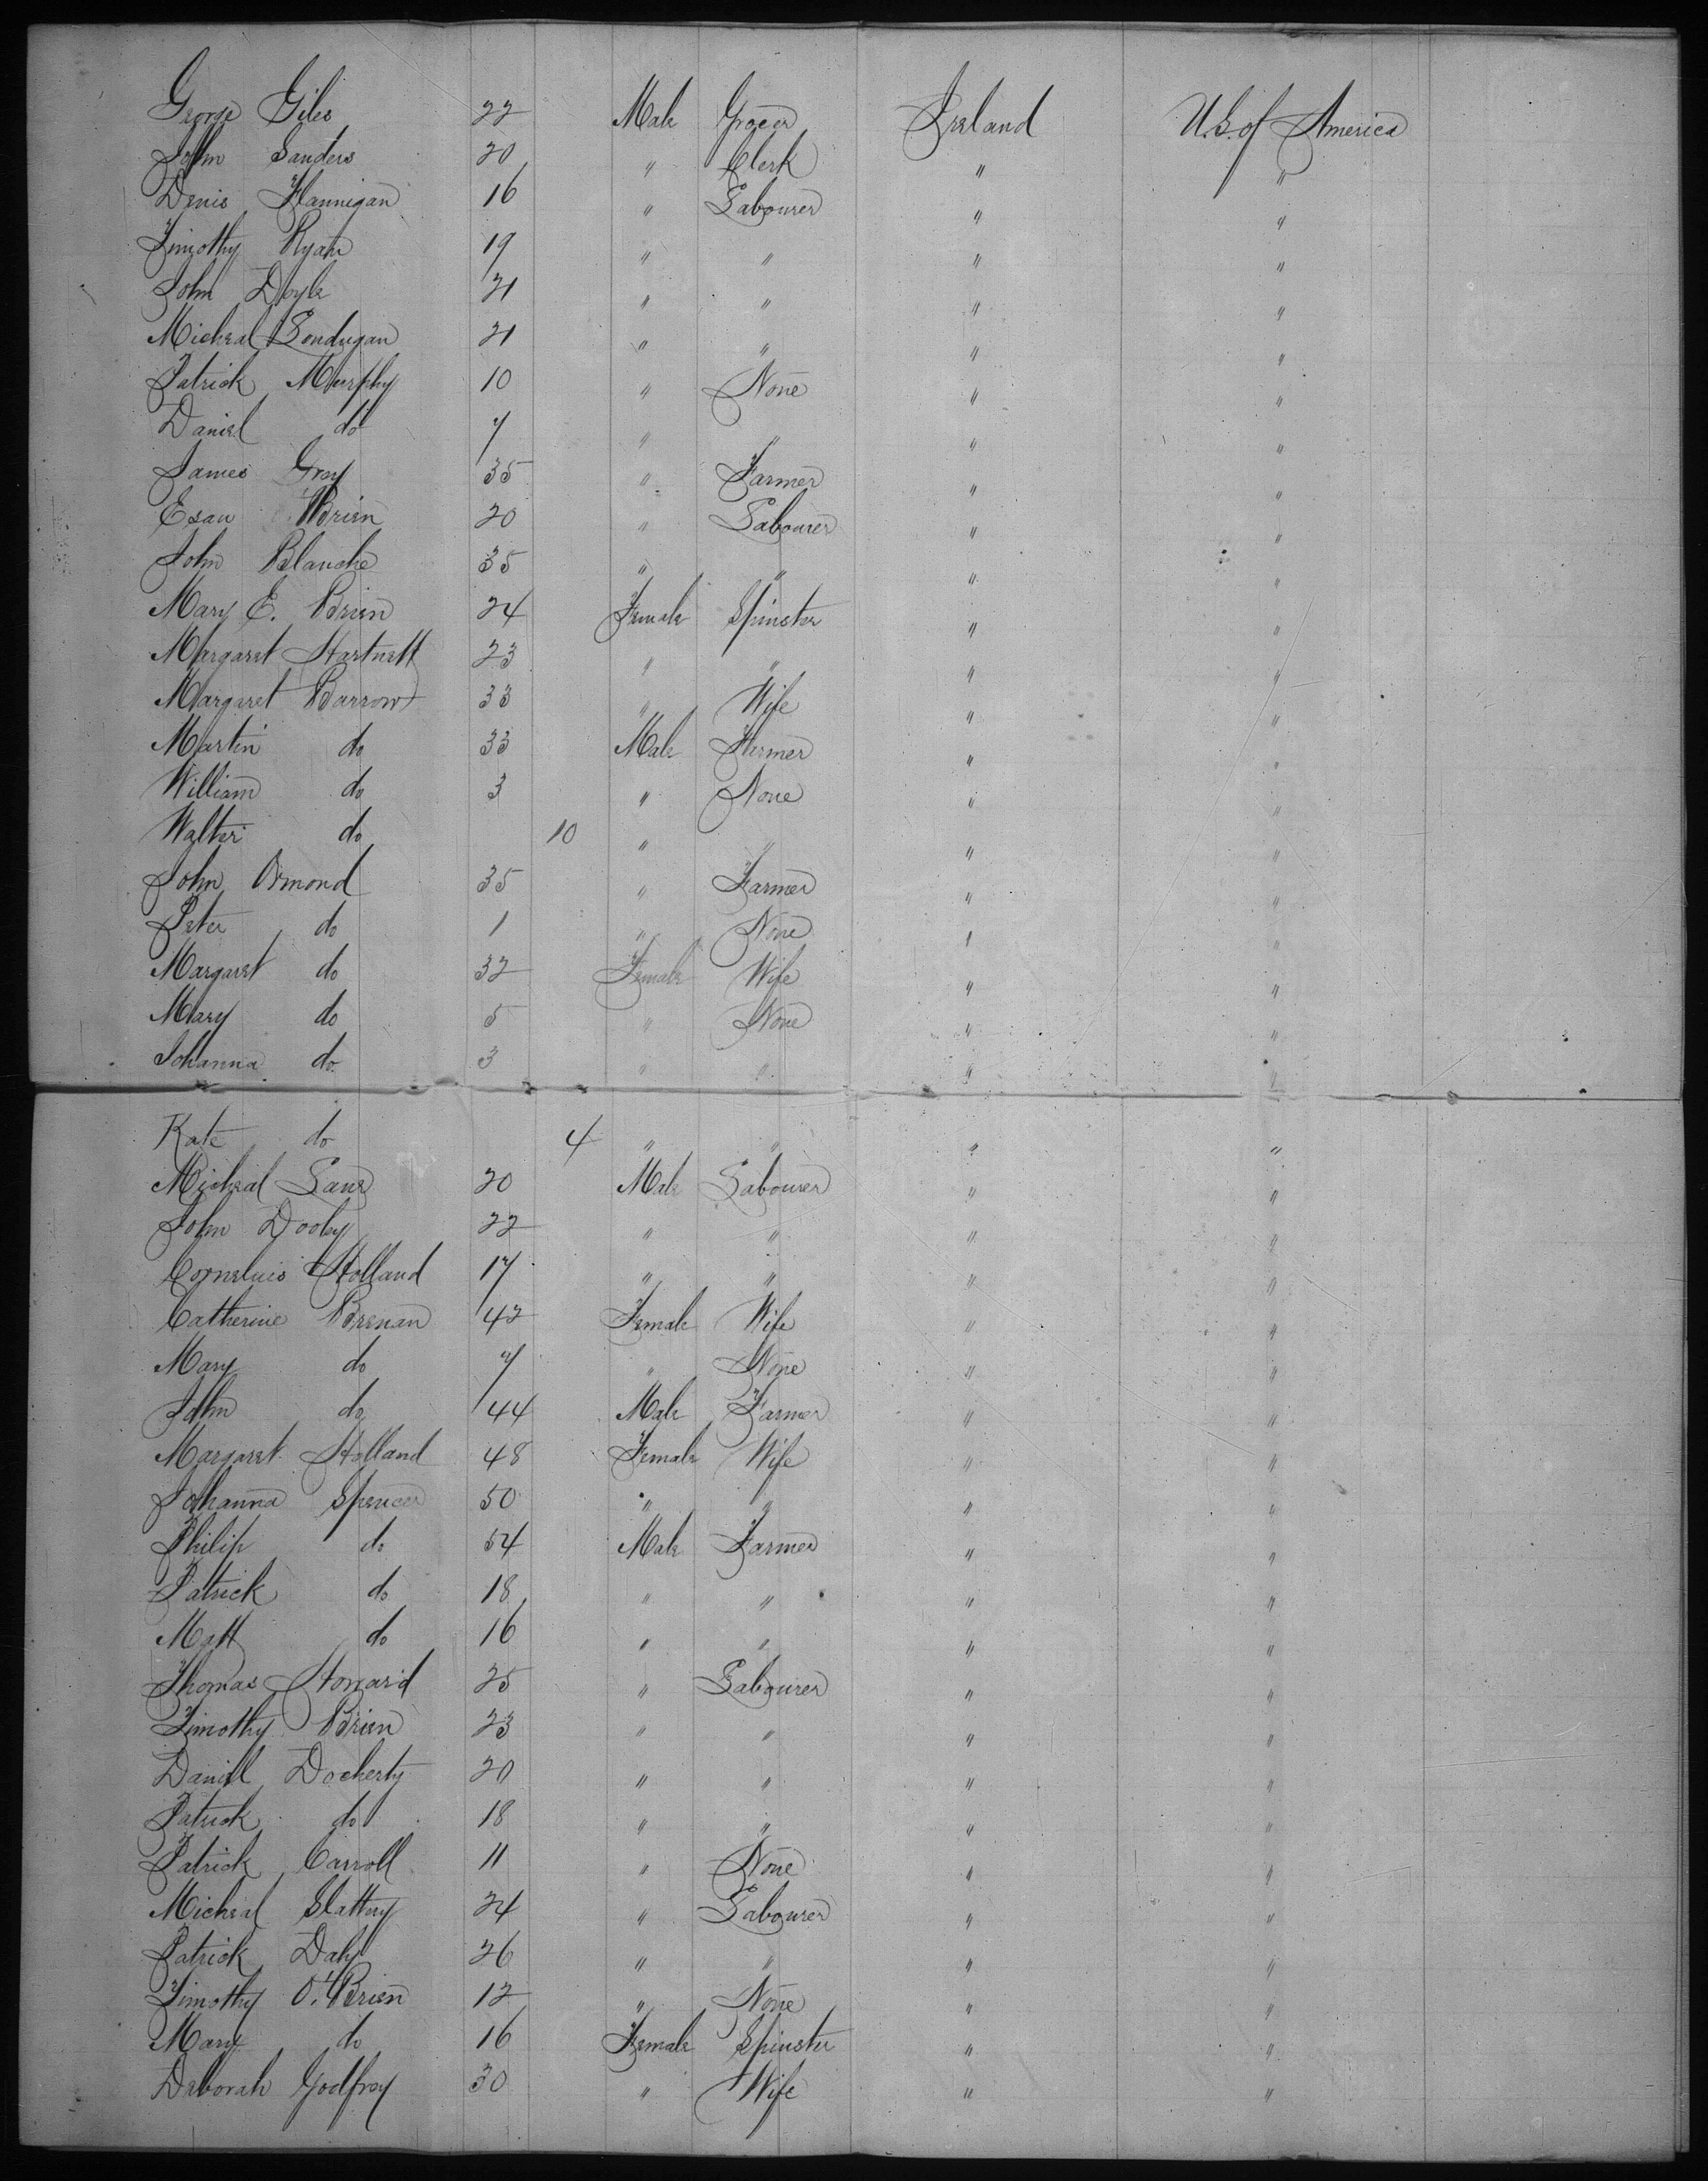 George Giles 22 Male Grocer Ireland U.S. of America
John Sanders 20 " Clerk " "
Denis Flannigan 16 " Labourer " "
Timothy Ryan 19 " " " "
John Doyle 21 " " " "
Micheal Londrigan 21 " " " "
Patrick Murphy 10 " None " "
Daniel do 7 " " " "
James Gray 35 " Farmer " "
Esau O'Brien 20 " Labourer " "
John Blanche 35 " " " "
Mary E. Brien 24 Female Spinster " "
Margaret Hartnett 23 " " " "
Margaret Barrow 33 " Wife " "
Martin do 33 Male Farmer " "
William do 3 " None " "
Walter do 10 " " " "
John Ormond 35 " Farmer " "
Peter do 1 " None " "
Margaret do 32 Female Wife " "
Mary do 5 " None " "
Johanna do 3 " " " "
Kate do 4 " " " "
Micheal Lane 20 Male Labourer " "
John Dooly 22 " " " "
Cornelius Holland 17 " " " "
Catherine Brenan 42 Female Wife " "
Mary do 7 " None " "
John do 44 Male Farmer " "
Margaret Holland 48 Female Wife " "
Johanna Spencer 50 " " " "
Philip do 54 Male Farmer " "
Patrick do 18 " " " "
Matt do 16 " " " "
Thomas Howard 25 " Labourer " "
Timothy Brien 23 " " " "
Daniel Docherty 20 " " " "
Patrick do 18 " " " "
Patrick Carroll 11 " None " "
Micheal Slattery 24 " Labourer " "
Patrick Daly 26 " " " "
Timothy O'Brien 12 " None " "
Mary do 16 Female Spinster " "
Deborah Godfrey 30 " Wife " "